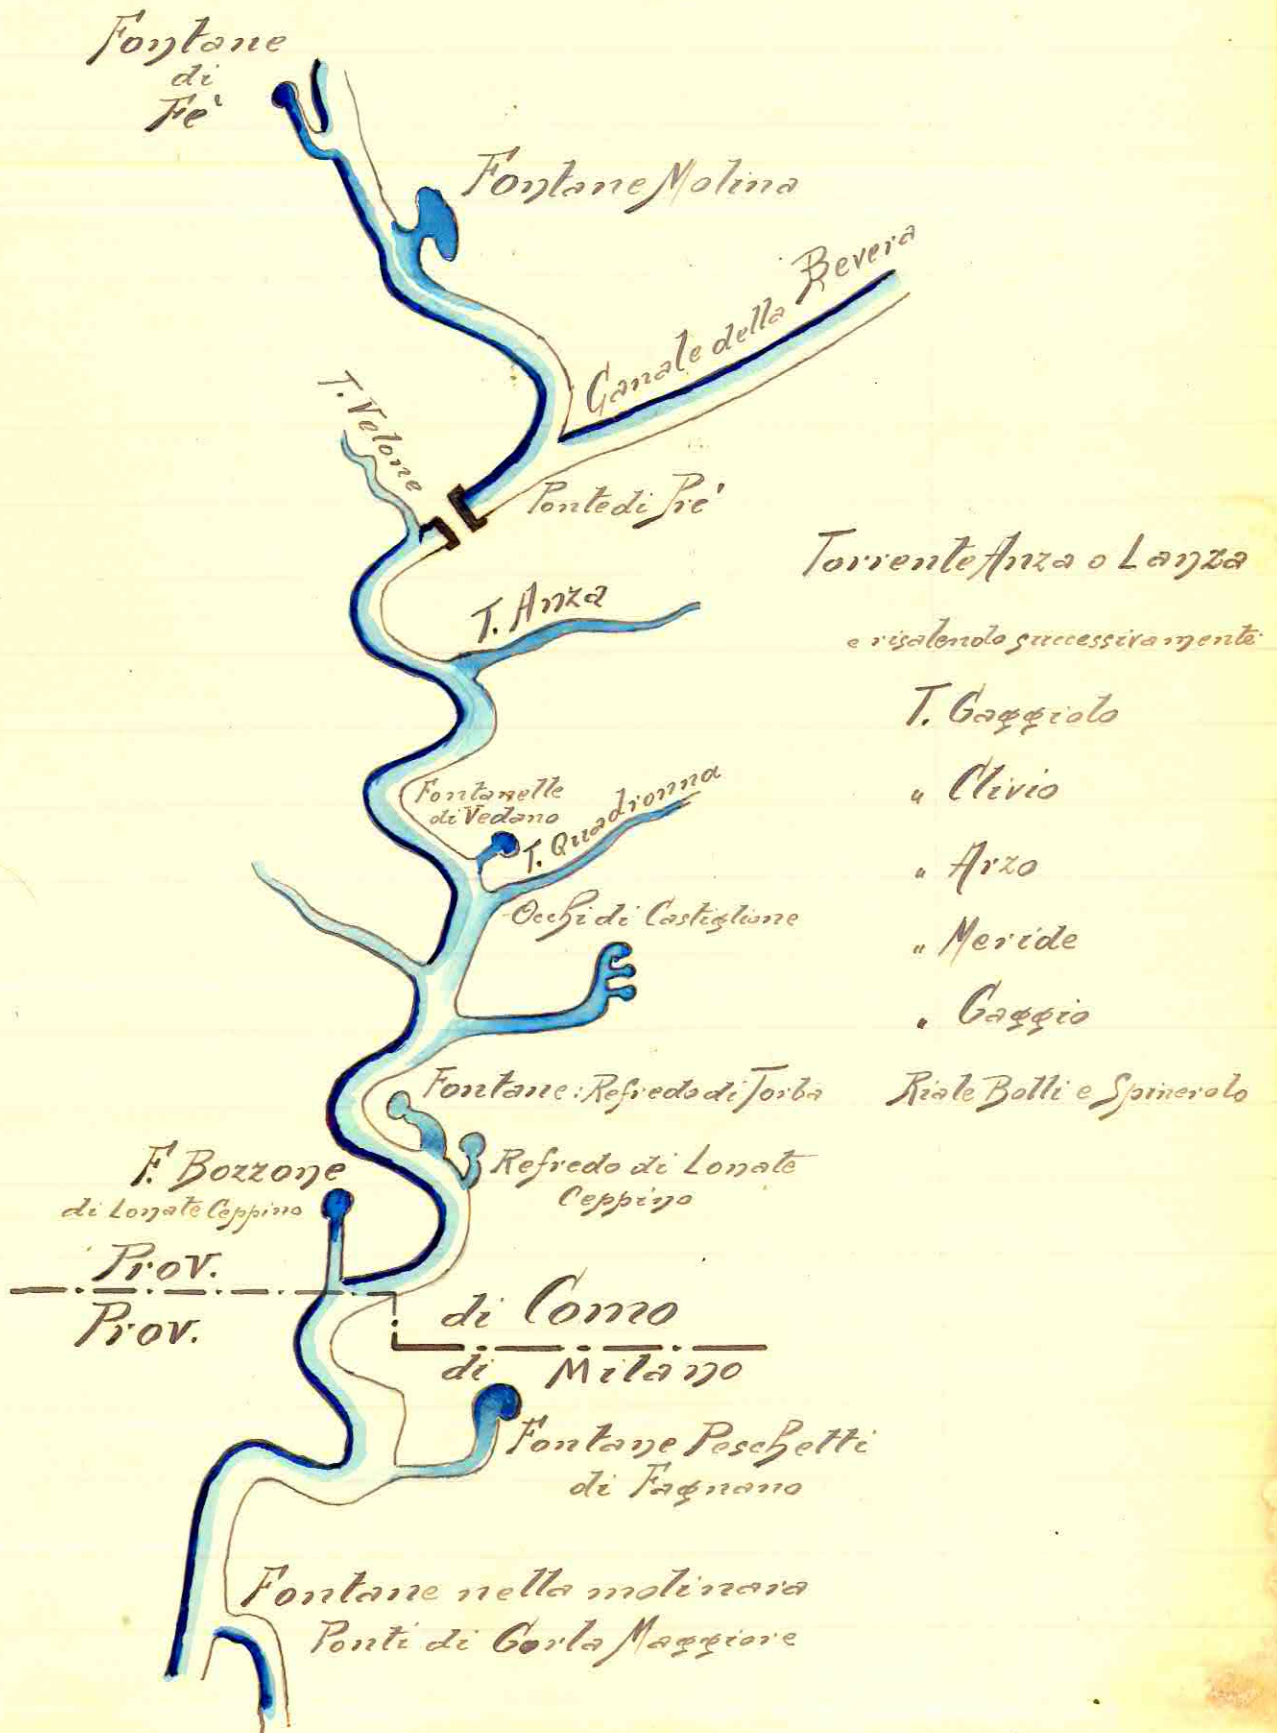 Fontane
di
Fe'
Fontane Molina
Canale della Bevera
T. Velone
Ponte di Pre'
Torrente Anza o Lanza
e risalendo successivamente
T. Anza
T. Gaggiolo
" Clivio
" Arzo
" Meride
" Gaggio
Riale Bolli e Spinerolo
Fontanelle
di Vedano
T. Quadronna
Occhi di Castiglione
Fontane: Refredo di Torba
Refredo di Lonate
Ceppino
F. Bozzone
di Lonate Ceppino
Prov. di Como
Prov. di Milano
Fontane Peschetti
di Fagnano
Fontane nella molinara
Ponti di Gorla Maggiore